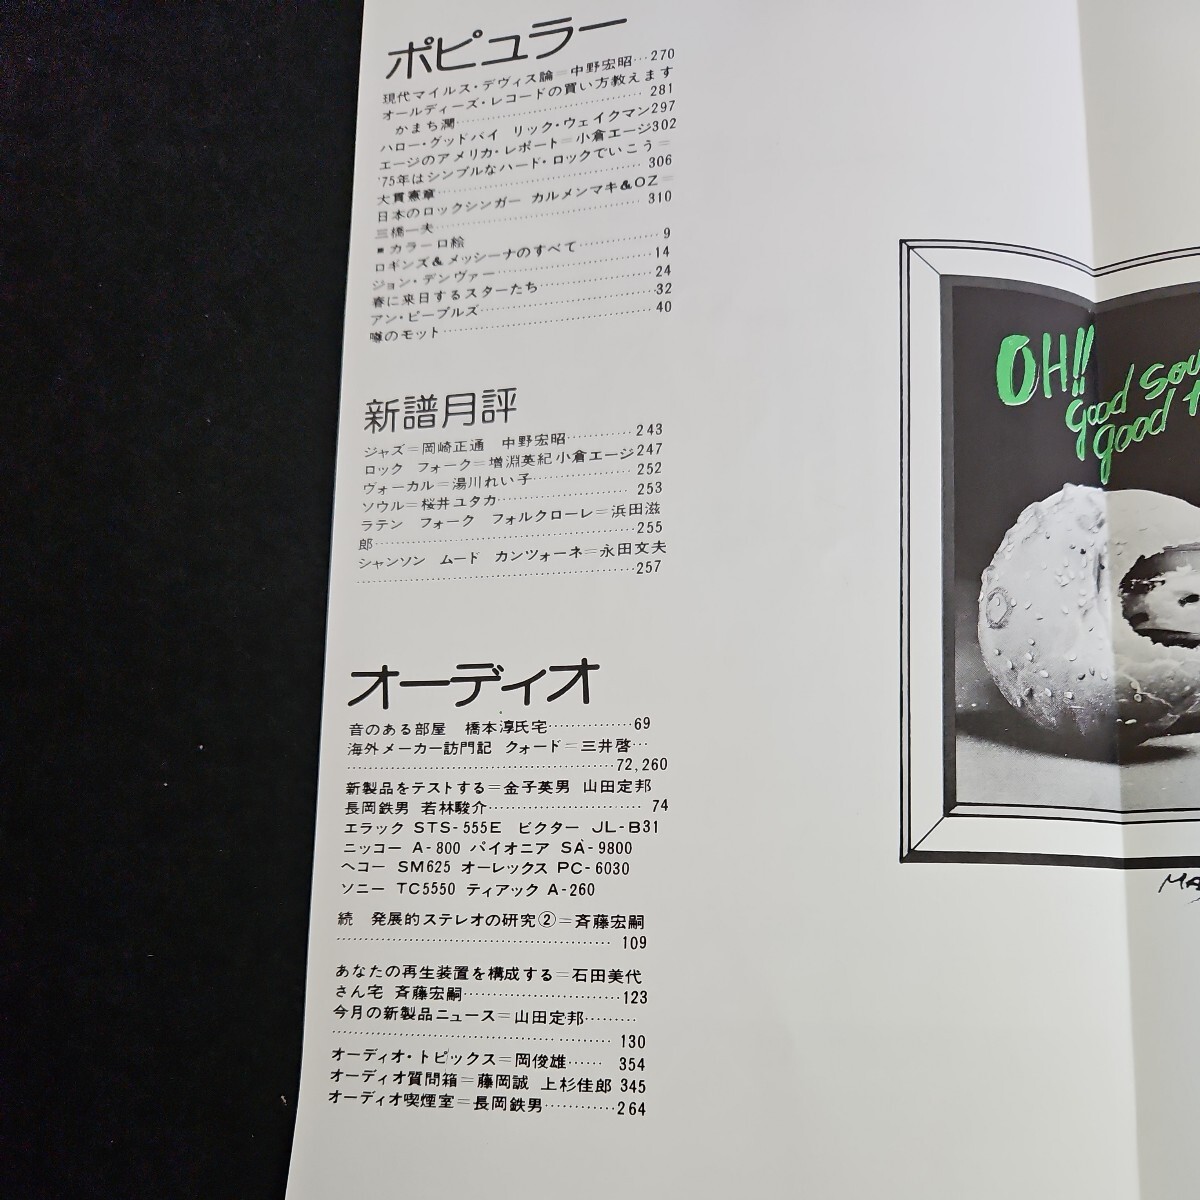 ポピュラー
現代マイルス・デヴィス論=中野宏昭…270
オールディーズ・レコードの買い方教えます
かまち潤……281
ハロー・グッドバイ リック・ウェイクマン297
エージのアメリカ・レポート=小倉エージ302
'75年はシンプルなハード・ロックでいこう=
大貫憲章……306
日本のロックシンガー カルメンマキ&OZ=
三橋一夫……310
■カラー口絵
ロギンズ&メッシーナのすべて……9
ジョン・デンヴァー……14
春に来日するスターたち……24
アン・ピーブルズ……32
噂のモット……40
新譜月評
ジャズ=岡崎正通 中野宏昭……243
ロック フォーク=増淵英紀小倉エージ247
ヴォーカル=湯川れい子……252
ソウル=桜井ユタカ……253
ラテン フォーク フォルクローレ=浜田滋
郎……255
シャンソン ムード カンツォーネ=永田文夫
……257
オーディオ
音のある部屋 橋本淳氏宅……69
海外メーカー訪門記 クォード=三井啓…
……72,260
新製品をテストする=金子英男 山田定邦
長岡鉄男 若林駿介……74
エラック STS-555E ビクター JL-B31
ニッコー A-800 パイオニア SA-9800
ヘコー SM625 オーレックス PC-6030
ソニー TC5550 ティアック A-260
続 発展的ステレオの研究②=斉藤宏嗣
……109
あなたの再生装置を構成する=石田美代
さん宅 斉藤宏嗣……123
今月の新製品ニュース=山田定邦……
……130
オーディオ・トピックス=岡俊雄……354
オーディオ質問箱=藤岡誠 上杉佳郎 345
オーディオ喫煙室=長岡鉄男……264
OH!!
good sou
good t
MA